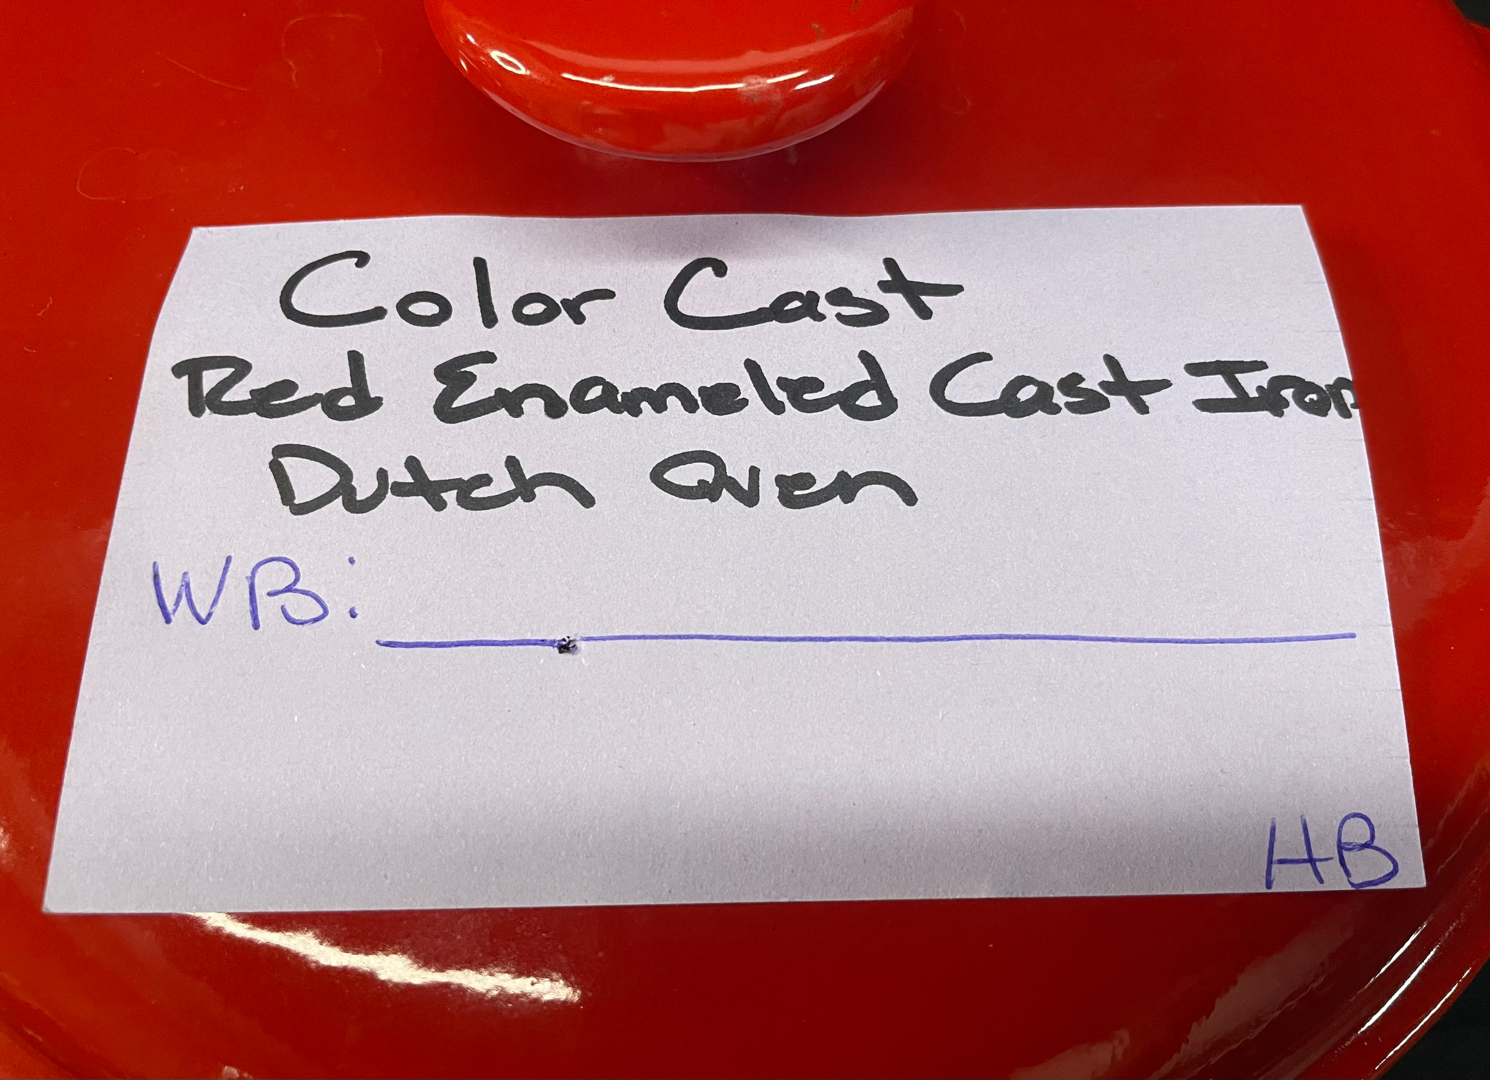 Color Cast
Red Enameled Cast Iron
Dutch Oven
WB:
HB